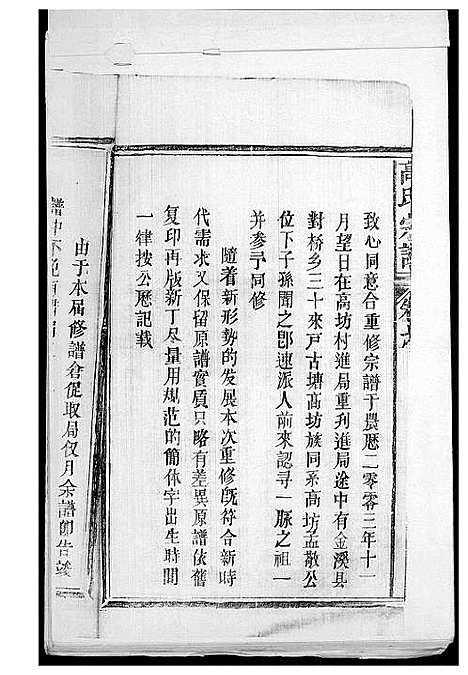 高氏宗譜
致心同意合重修宗譜于農历二零零三年十一
月望日在高坊村進局重刋進局途中有金溪县
對桥乡三十來戸古塘高坊族同系高坊孟散公
位下子孫聞之卽速派人前來認寻一脉之祖一
并参予同修
隨着新形勢的发展本次重修旣符合新時
代需求又保留原譜實貭只略有差異原譜依舊
复印再版新丁尽量用规范的簡体字出生時間
一律按公歷記载
由于本届修譜倉促取局仅月余譜卽告竣